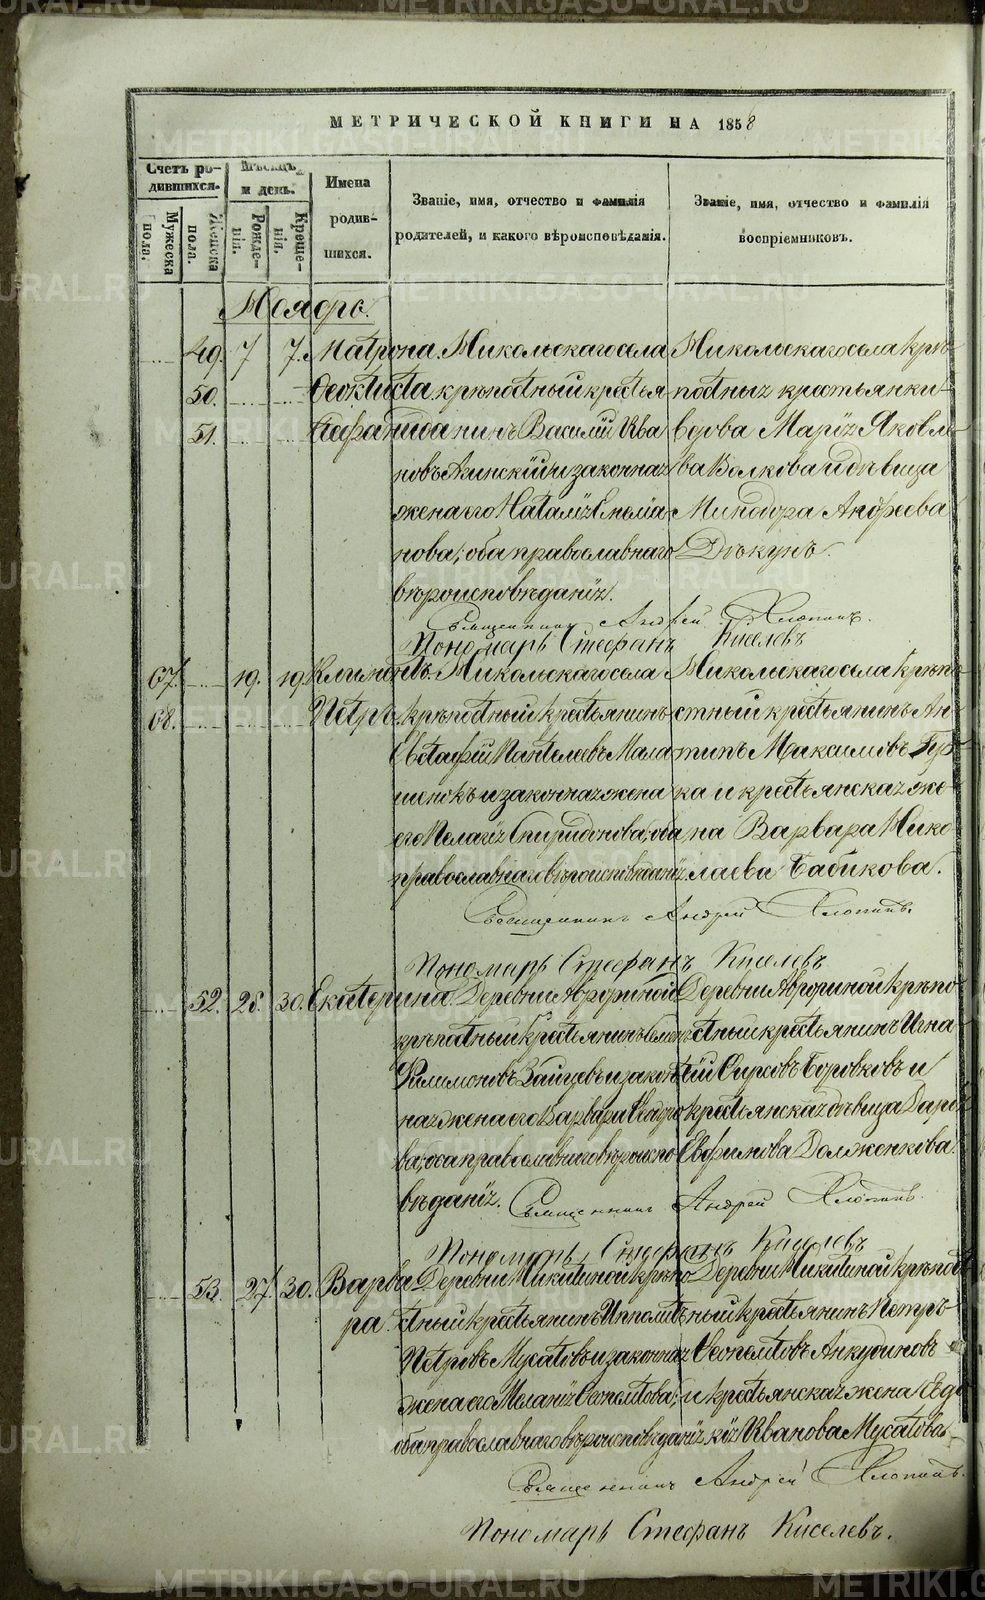 МЕТРИЧЕСКОЙ КНИГИ НА 1858
Счетъ ро-
дившихся.
Мужеска
пола.
Женска
пола.
Мѣсяцъ
и день.
Рожде-
нія.
Креще-
нія.
Имена
родив-
шихся.
Званіе, имя, отчество и фамилія
родителей, и какого вѣроисповѣданія.
Званіе, имя, отчество и фамилія
воспріемниковъ.
Ноябрь.
49. 7 7. Матрона. Никольскаго села
50. Феоктиста. крѣпостный крестья
51. Стефанида нинъ Василій Ива
новъ и законная
жена его Наталія Емелiа
нова; оба православнаго
вѣроисповѣданія.
Никольскаго села крѣ-
постныя крестьянки
вдова Марія Яковле
ва Волкова и дѣвица
Минодора Андреева
Дѣкунъ.
Священникъ Андрей Хлопинъ.
Пономарь Стефанъ Киселевъ
67. 19. 19. Климентъ. Никольскаго села
68. Петръ. крѣпостный крестьянинъ
Евстафій Пантелеевъ Мала
шенокъ и законная жена
его Пелагія Спиридонова; оба
православнаго вѣроисповѣданія
Никольскаго села крѣпо
стный крестьянинъ Ан
типъ Максимовъ
ка и крестьянская же
на Варвара Нико
лаева Бабикова.
Священникъ Андрей Хлопинъ.
Пономарь Стефанъ Киселевъ
52. 28. 30. Екатерина Деревни Аврориной
крѣпостный крестьянинъ
Филимоновъ Зайцевъ и закон
ная жена его Варвара Федоро
ва; оба православнаго вѣроиспо
вѣданія.
Деревни Аврориной крѣпо
стный крестьянинъ Игна
тій Боровковъ и
крестьянская дѣвица Дарья
Евфимова Долженкова.
Священникъ Андрей Хлопинъ.
Пономарь Стефанъ Киселевъ
53. 27. 30. Варва
ра.
Деревни Никитиной крѣпо
стный крестьянинъ Ипполитъ
Петровъ Мусатовъ и законная
жена его Меланія Феопемтова;
оба православнаго вѣроисповѣданія
Деревни Никитиной крѣпост
ный крестьянинъ Петръ
Феопемтовъ Анкудиновъ
и крестьянская жена Евдо
кія Иванова Мусатова.
Священникъ Андрей Хлопинъ.
Пономарь Стефанъ Киселевъ.
METRIKI.GASO-URAL.RU